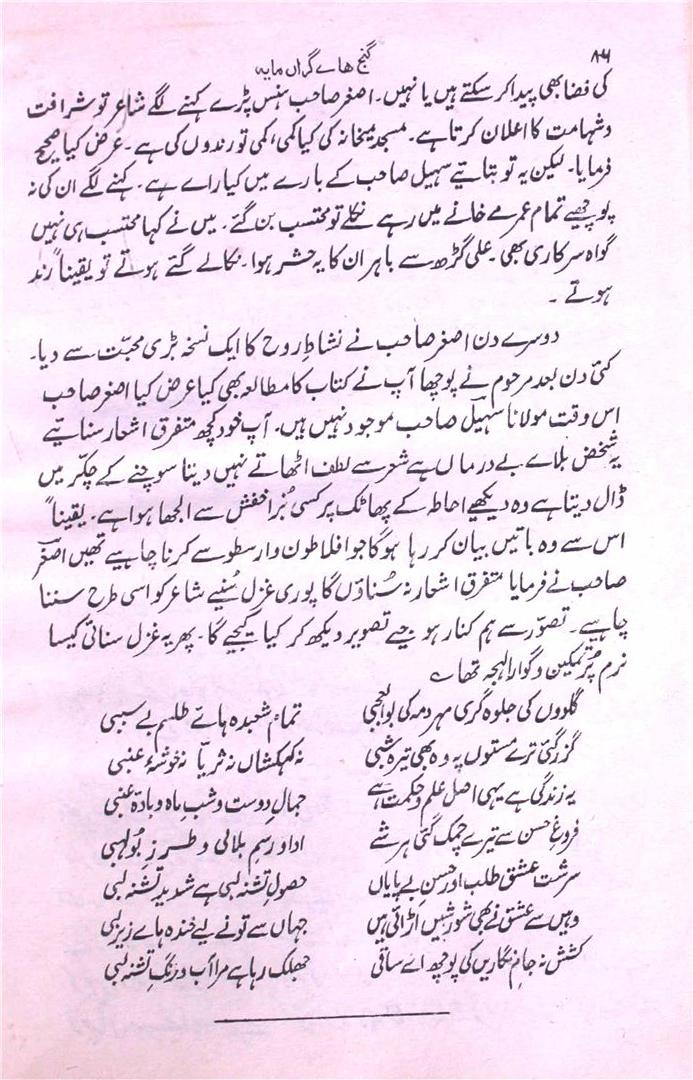 ۸۶
گنج ھاے گراں مایہ
کی فضا بھی پیدا کر سکتے ہیں یا نہیں۔ اصغر صاحب ہنس پڑے کہنے لگے شاعر تو شرافت
و شہامت کا اعلان کرتا ہے۔ مسجد میخانہ کی کیا کمی، کمی تو رندوں کی ہے۔ عرض کیا صحیح
فرمایا۔ لیکن یہ تو بتایئے سہیل صاحب کے بارے میں کیا راے ہے۔ کہنے لگے ان کی نہ
پوچھیے تمام عمر مے خانے میں رہے نکلے تو محتسب بن گئے۔ میں نے کہا محتسب ہی نہیں
گواہ سرکاری بھی۔ علی گڑھ سے باہر ان کا یہ حشر ہوا۔ نکالے گئے ہوتے تو یقیناً رند
ہوتے ۔
دوسرے دن اصغر صاحب نے نشاطِ روح کا ایک نسخہ بڑی محبّت سے دیا۔
کئی دن بعد مرحوم نے پوچھا آپ نے کتاب کا مطالعہ بھی کیا عرض کیا اصغر صاحب
اس وقت مولانا سہیل صاحب موجود نہیں ہیں۔ آپ خود کچھ متفرق اشعار سنایئے
یہ شخص بلاے بے درماں ہے شعر سے لطف اٹھانے نہیں دیتا سوچنے کے چکر میں
ڈال دیتا ہے وہ دیکھیے احاطہ کے پھاٹک پر کسی بُزِ اخفش سے الجھا ہوا ہے۔ یقیناً
اس سے وہ باتیں بیان کر رہا ہوگا جو افلاطون و ارسطو سے کرنا چاہیے تھیں اصغر
صاحب نے فرمایا متفرق اشعار نہ سُناؤں گا پوری غزل سُنیے شاعر کو اسی طرح سننا
چاہیے۔ تصوّر سے ہم کنار ہو جیے تصویر دیکھ کر کیا کیجیے گا۔ پھر یہ غزل سنائی کیسا
نرم پُر تمکین و گوارا لہجہ تھا ؎
گلووں کی جلوہ گری مہر و مہ کی بوالعجبی تمام شعبدہ ہاے طلسم بے سببی
گزر گئی ترے مستوں پہ وہ بھی تیرہ شبی نہ کہکشاں نہ ثریّا نہ خوشۂ عنبی
یہ زندگی ہے یہی اصل علم و حکمت ہے جمالِ دوست و شبِ ماہ و بادۂ عنبی
فروغِ حسن سے تیرے چمک گئی ہر شے ادا و رسمِ بلالی و طرزِ بُولہبی
سرشت عشق طلب اور حسن بے پایاں حصولِ تشنہ لبی ہے شدید تشنہ لبی
وہیں سے عشق نے بھی شورشیں اڑائی ہیں جہاں سے تو نے لیے خندہ ہاے زیر لبی
کشش نہ جامِ نگاریں کی پوچھ اے ساقی جھلک رہا ہے مرا آب و رنگِ تشنہ لبی